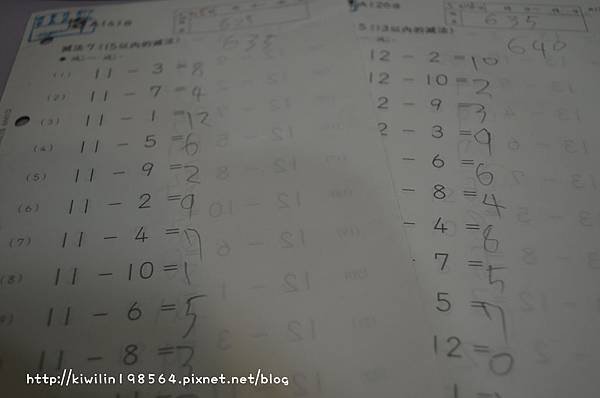 減法7(15以內的減法)
635
(1) 11 - 3 = 8
(2) 11 - 7 = 4
(3) 11 - 1 = 12
(4) 11 - 5 = 6
(5) 11 - 9 = 2
(6) 11 - 2 = 9
(7) 11 - 4 = 7
(8) 11 - 10 = 1
11 - 6 = 5
11 - 8 = 3
635
5(13以內的減法)
640
12 - 2 = 10
12 - 10 = 2
2 - 9 = 3
2 - 3 = 9
- 6 = 6
- 8 = 4
- 4 = 8
7 = 5
5 = 7
12 = 0
http://kiwilin198564.pixnet.net/blog